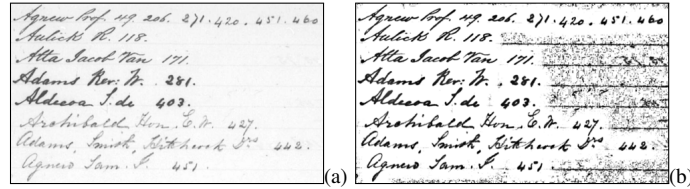 Agnew Prof. 49. 206. 271. 420. 451. 460
Aulick R. 118.
Atta Jacob Van 171.
Adams Rev: W. 281.
Aldecoa J. de 403.
Archibald Hon. E. W. 427.
Adams, Smith, Hitchcock Drs 442.
Agnew Sam. J. 451.
(a)
Agnew Prof. 49. 206. 271. 420. 451. 460
Aulick R. 118.
Atta Jacob Van 171.
Adams Rev: W. 281.
Aldecoa J. de 403.
Archibald Hon. E. W. 427.
Adams, Smith, Hitchcock Drs 442.
Agnew Sam. J. 451
(b)